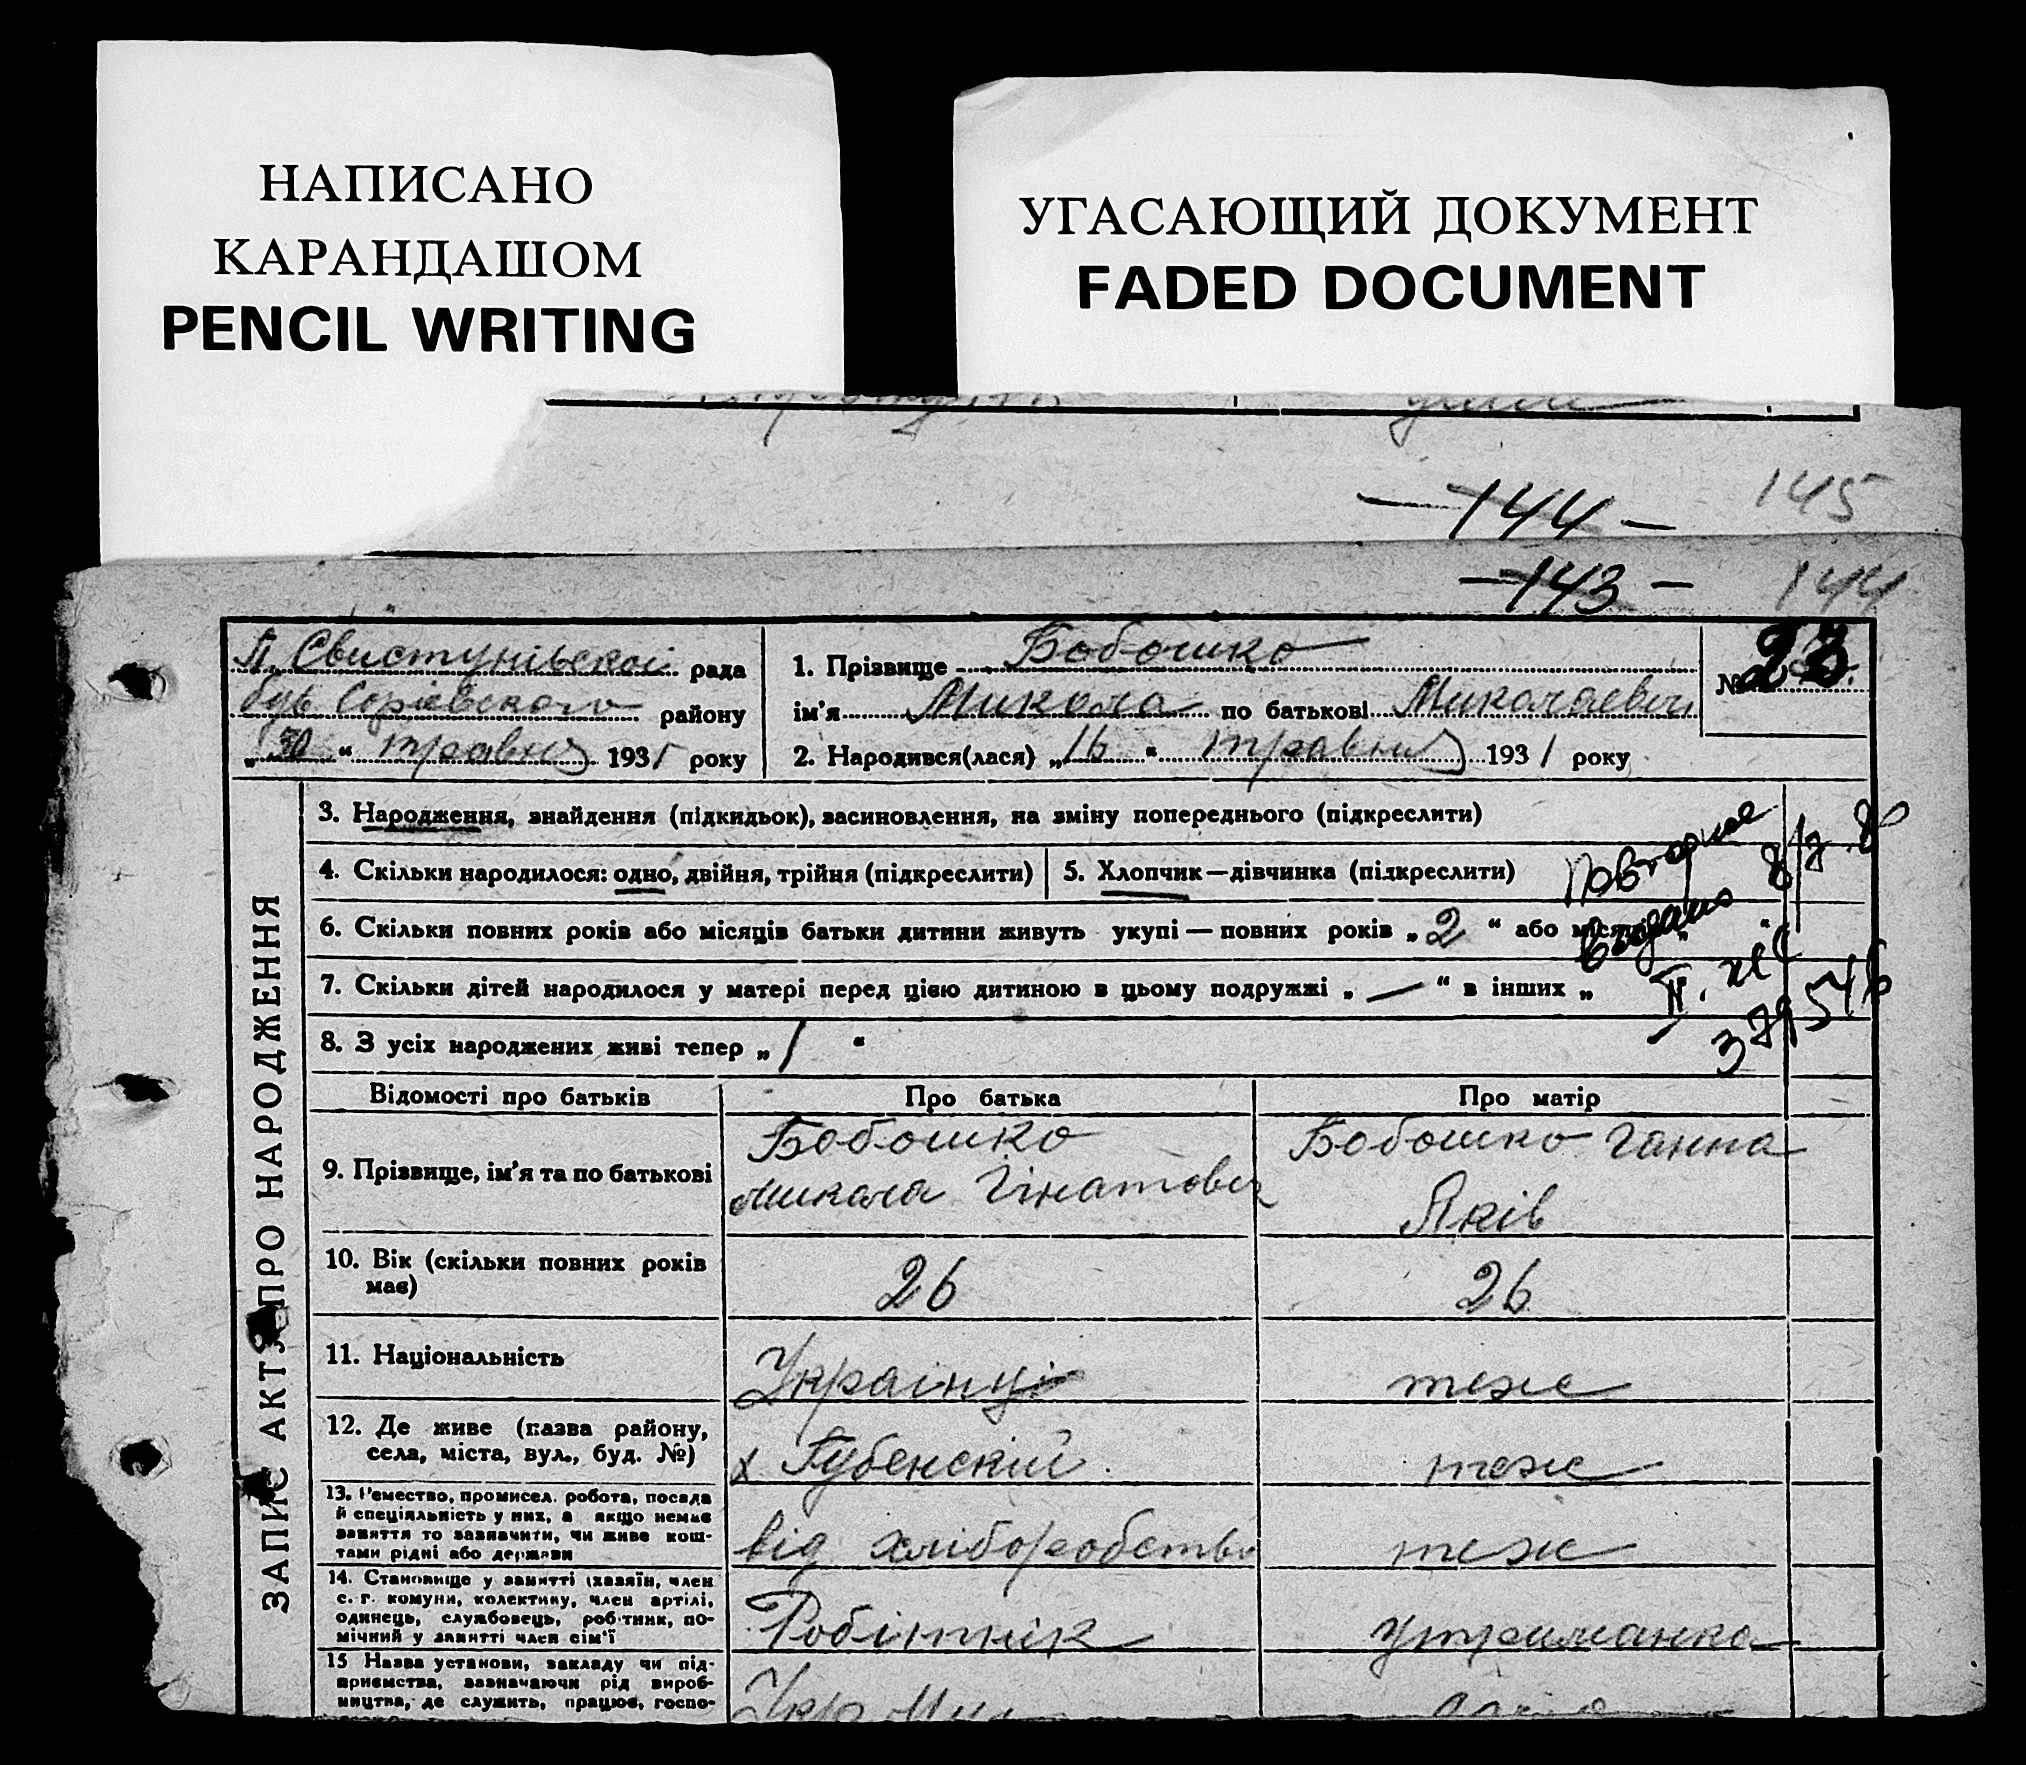 НАПИСАНО
КАРАНДАШОМ
PENCIL WRITING
УГАСАЮЩИЙ ДОКУМЕНТ
FADED DOCUMENT
— 144 — 145
— 143 — 144
П. Свистунівської рада
району
„30“ травня 1931 року
1. Прізвище Бобошко
ім'я Микола по батькові Миколаєвич
2. Народився(лася) „16“ травня 1931 року
№ 23
ЗАПИС АКТА ПРО НАРОДЖЕННЯ
3. Народження, знайдення (підкидьок), засиновлення, на зміну попереднього (підкреслити)
4. Скільки народилося: одно, двійня, трійня (підкреслити)
5. Хлопчик—дівчинка (підкреслити)
6. Скільки повних років або місяців батьки дитини живуть укупі — повних років „2“ або місяців „ “
7. Скільки дітей народилося у матері перед цією дитиною в цьому подружжі „—“ в інших „
8. З усіх народжених живі тепер „1“
Повторное
выдано
379546
Відомості про батьків Про батька Про матір
9. Прізвище, ім'я та по батькові
Бобошко
Микола Гінатович
Бобошко Ганна
Яків
10. Вік (скільки повних років
має)
26 26
11. Національність Українці теж
12. Де живе (назва району,
села, міста, вул., буд. №)
х Губенский теж
13. Ремество, промисел, робота, посада
й спеціяльність у них, а якщо немає
заняття то зазначити, чи живе кош-
тами рідні або держави
від хліборобства теж
14. Становище у занятті (хазяїн, член
с. г. комуни, колективу, член артілі,
одинець, службовець, робітник, по-
мічний у занятті член сім'ї
Робітник утриманка
15 Назва установи, закладу чи під-
приємства, зазначаючи рід вироб-
ництва, де служить, працює, госпо-